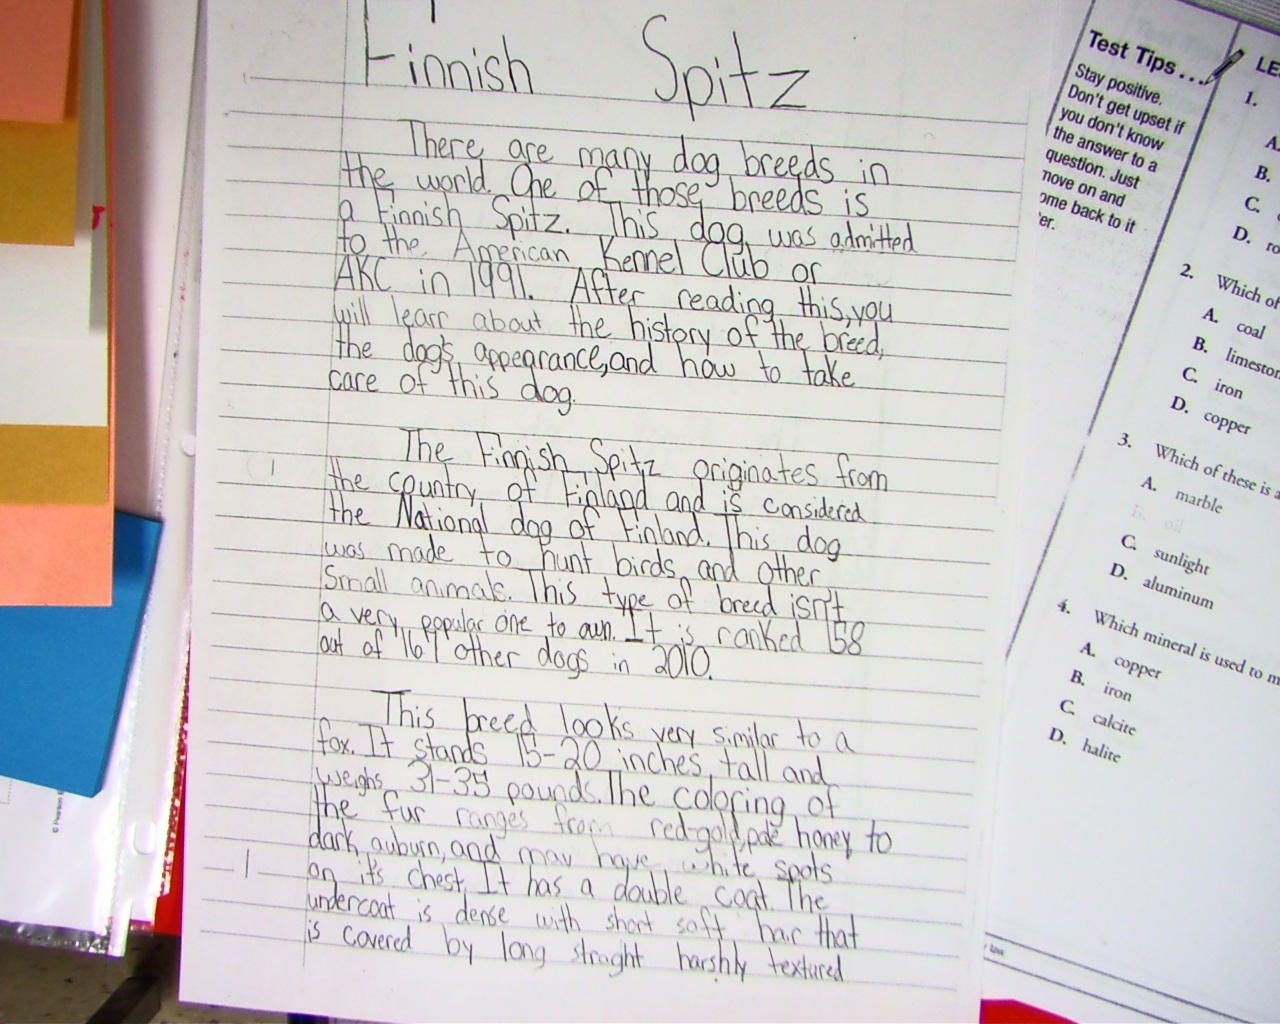 Finnish Spitz
There are many dog breeds in
the world. One of those breeds is
a Finnish Spitz. This dog was admitted
to the American Kennel Club or
AKC in 1991. After reading this, you
will learr about the history of the breed,
the dog's appearance, and how to take
care of this dog.
The Finnish Spitz originates from
the country of Finland and is considered
the National dog of Finland. This dog
was made to hunt birds and other
small animals. This type of breed isn't
a very popular one to own. It is ranked 158
out of 167 other dogs in 2010.
This breed looks very similar to a
fox. It stands 15-20 inches tall and
weighs 31-35 pounds. The coloring of
the fur ranges from red-gold, pale honey to
dark auburn, and may have white spots
on it's chest. It has a double coat. The
undercoat is dense with short soft hair that
is covered by long straght harshly textured
Test Tips...
Stay positive.
Don't get upset if
you don't know
the answer to a
question. Just
move on and
ome back to it
er.
LE
1.
A.
B.
C.
D. ro
2. Which of
A. coal
B. limeston
C. iron
D. copper
3. Which of these is a
A. marble
B. oil
C. sunlight
D. aluminum
4. Which mineral is used to m
A. copper
B. iron
C. calcite
D. halite